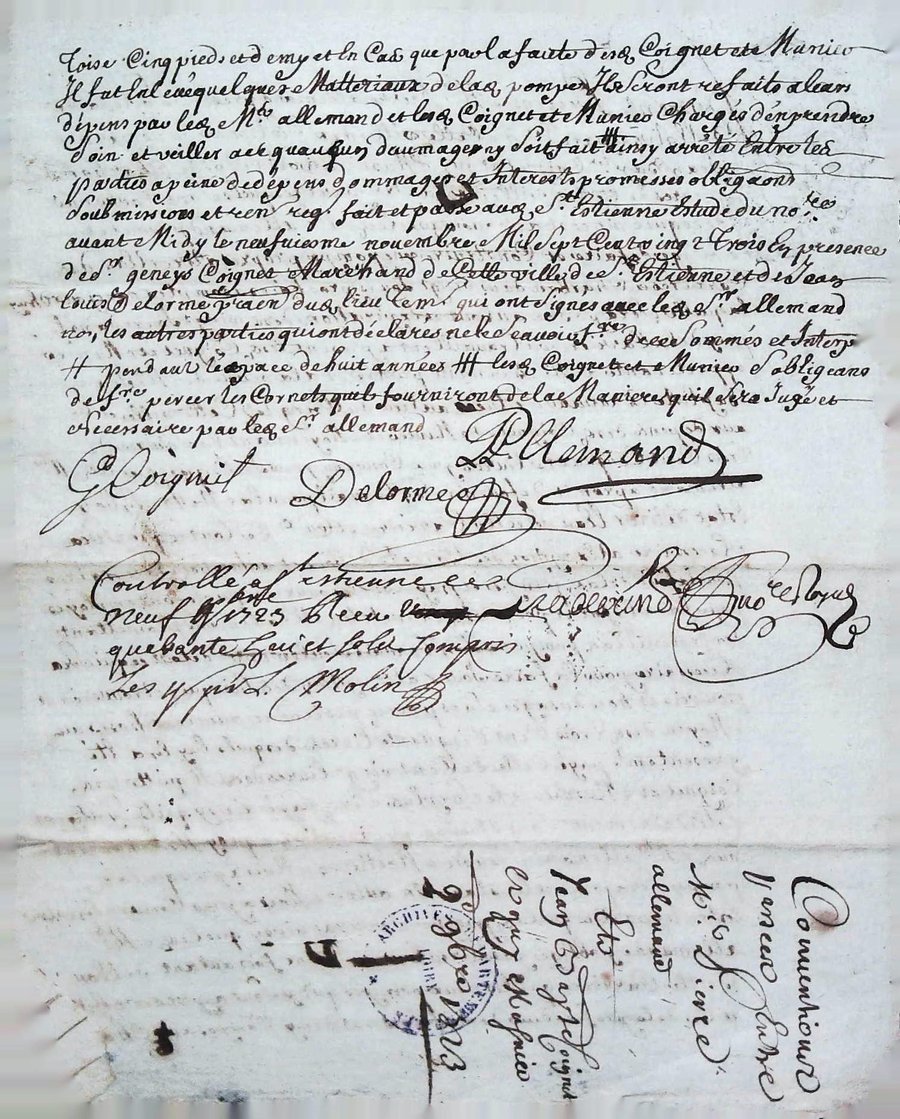 toise Cinq pieds et demy et En Cas que par la faute desd Coignet et Munier
Il fut Enlevé quelques Matteriaux delad pompe Ils seront refaits a leurs
dépens par led Mr allemand et lesd Coignet et Munier Chargés d'en prendre
soin et veiller a ce qu'aucun daumage ny soit fait # ainsy arrêté Entre les
parties a peine de dépens dommages et Interests promesses obligaons
soubmissions et ren reg. fait et passé aud St Estienne Estude du nore
avant Midy le neufviesme novembre Mil Sept Cent vingt Trois En presence
de Sr geneys Coignet Marchand de Cette ville de St Estienne et de Jean
louis Delorme praen dud lieu tesm. qui ont signés avec led Sr allemand
non les autres parties qui ont déclarés ne le sçavoir fre de ce sommés et Interp
# pendant l'espace de huit années # lesd Coignet et Munier s'obligeans
de fre percer les Cornets quils fourniront de la Maniere quil sera Jugé et
Nécessaire par led Sr allemand
PAllemand
G Coignet
Delorme
Controllé a St Estienne le
neuf 9bre 1723 Receu
quarante huict sols Compris
Les 4 s pr L. Molin
nore Royal
Conventions
passées Entre
Mre Pierre
allemand
Et
Jean Bapte Coignet
Munier
9 9bre 1723
ARCHIVES DÉPARTEMENTALES
LOIRE